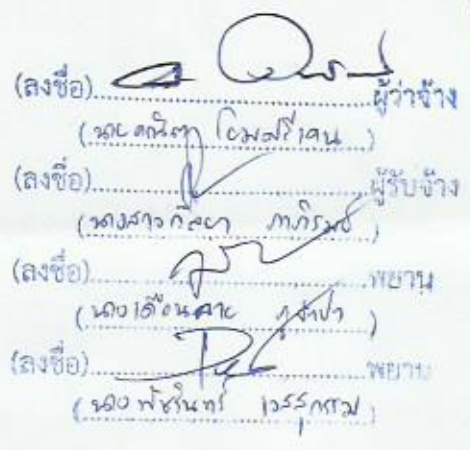 (ลงชื่อ)........................ผู้ว่าจ้าง
(นาย โยมศรีเคน )
(ลงชื่อ)........................ผู้รับจ้าง
(นางสาวกัลยา ภาภิรมย์ )
(ลงชื่อ)........................พยาน
(นางเดือนฉาย )
(ลงชื่อ)........................พยาน
(นางพัชรินทร์ เวสสุกรรม )